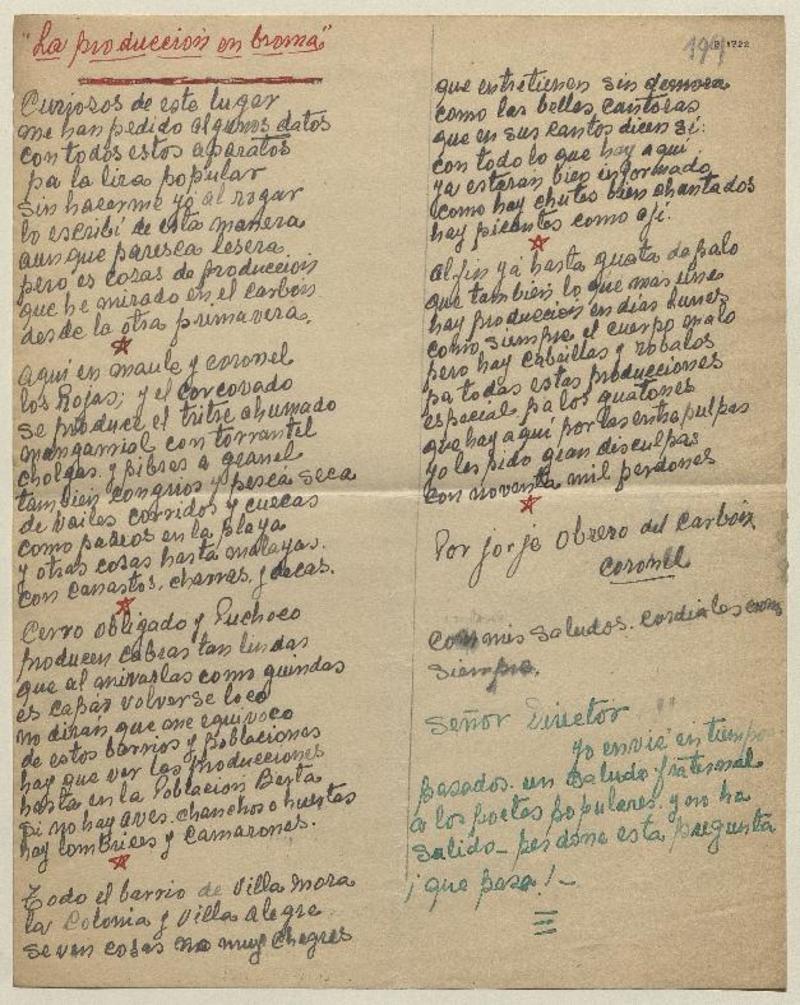 "La produccion en broma"
Curiozos de este lugar
me han pedido algunos datos
con todos estos aparatos
pa la lira popular
sin hacerme yo al rogar
lo escribí de esta manera
aunque paresca lesera
pero es cozas de produccion
que he mirado en el carbon
desde la otra primavera.
Aqui en maule y coronel
los Rojas; y el corcovado
se produce el tritre ahumado
mangarriol con torrantel
cholgas y pibres a granel
tambien congrios y pescá seca
de bailes corridos y cuecas
como paseos en la playa
y otras cosas hasta malayas.
con canastos, charras, y decas.
Cerro obligado y Puchoco
producen cabras tan lindas
que al mirarlas como guindas
es capas volverse loco
no dirán que me equivoco
de estos barrios y poblaciones
hay que ver las producciones
hasta en la Poblacion Berta
si no hay aves. chanchos o huertas
hay lombrices y camarones.
Todo el barrio de Villa Mora
la Colonia y Villa Alegre
se ven cosas no muy chegres
199 1722
que entretienen sin demora
como las bellas cantoras
que en sus cantos dicen sí:
con todo lo que hay aquí
ya estarán bien informado
como hay chutes bien chantados
hay picantes como ají.
Al fin yá hasta guata de palo
que tambien lo que mas
hay produccion en días lunes
como siempre el cuerpo malo
pero hay cabrillas y robalos
pa todas estas producciones
especial pa los guatones
que hay aquí por las entre pulpas
yo les pido gran disculpas
con noventa mil perdones
Por jorje Obrero del Carbon
Coronel
Con mis saludos. Cordiales como
siempre.
Señor Director
yo envié en tiempos
pasados. un saludo fraternal
a los poetas populares. y no ha
salido - perdone esta pregunta
¡que pasa! -